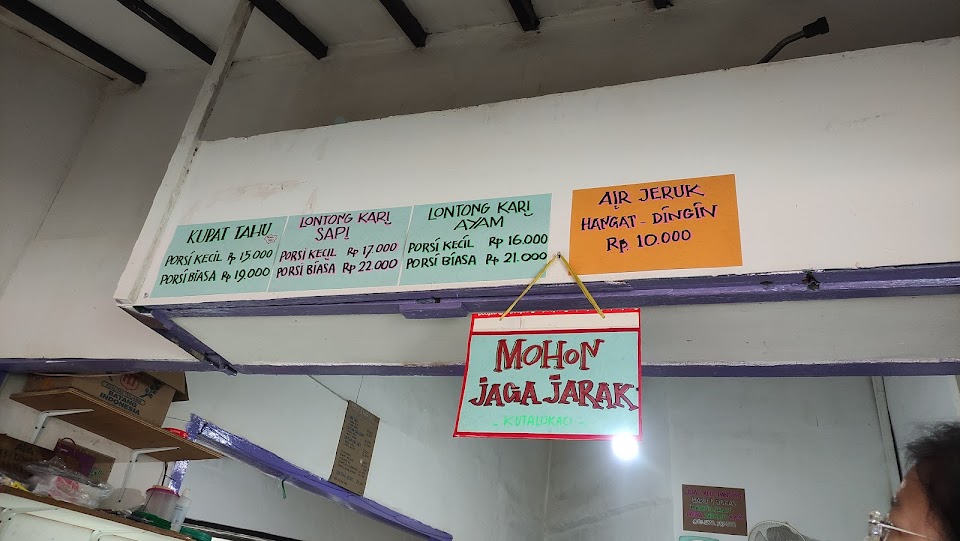 KUPAT TAHU
PORSI KECIL Rp 15.000
PORSI BIASA Rp 19.000
LONTONG KARI
SAPI
PORSI KECIL Rp 17.000
PORSI BIASA Rp 22.000
LONTONG KARI
AYAM
PORSI KECIL Rp 16.000
PORSI BIASA Rp 21.000
AIR JERUK
HANGAT - DINGIN
Rp. 10.000
MOHON
JAGA JARAK
- KUTALOKACI -
BATANG
INDONESIA